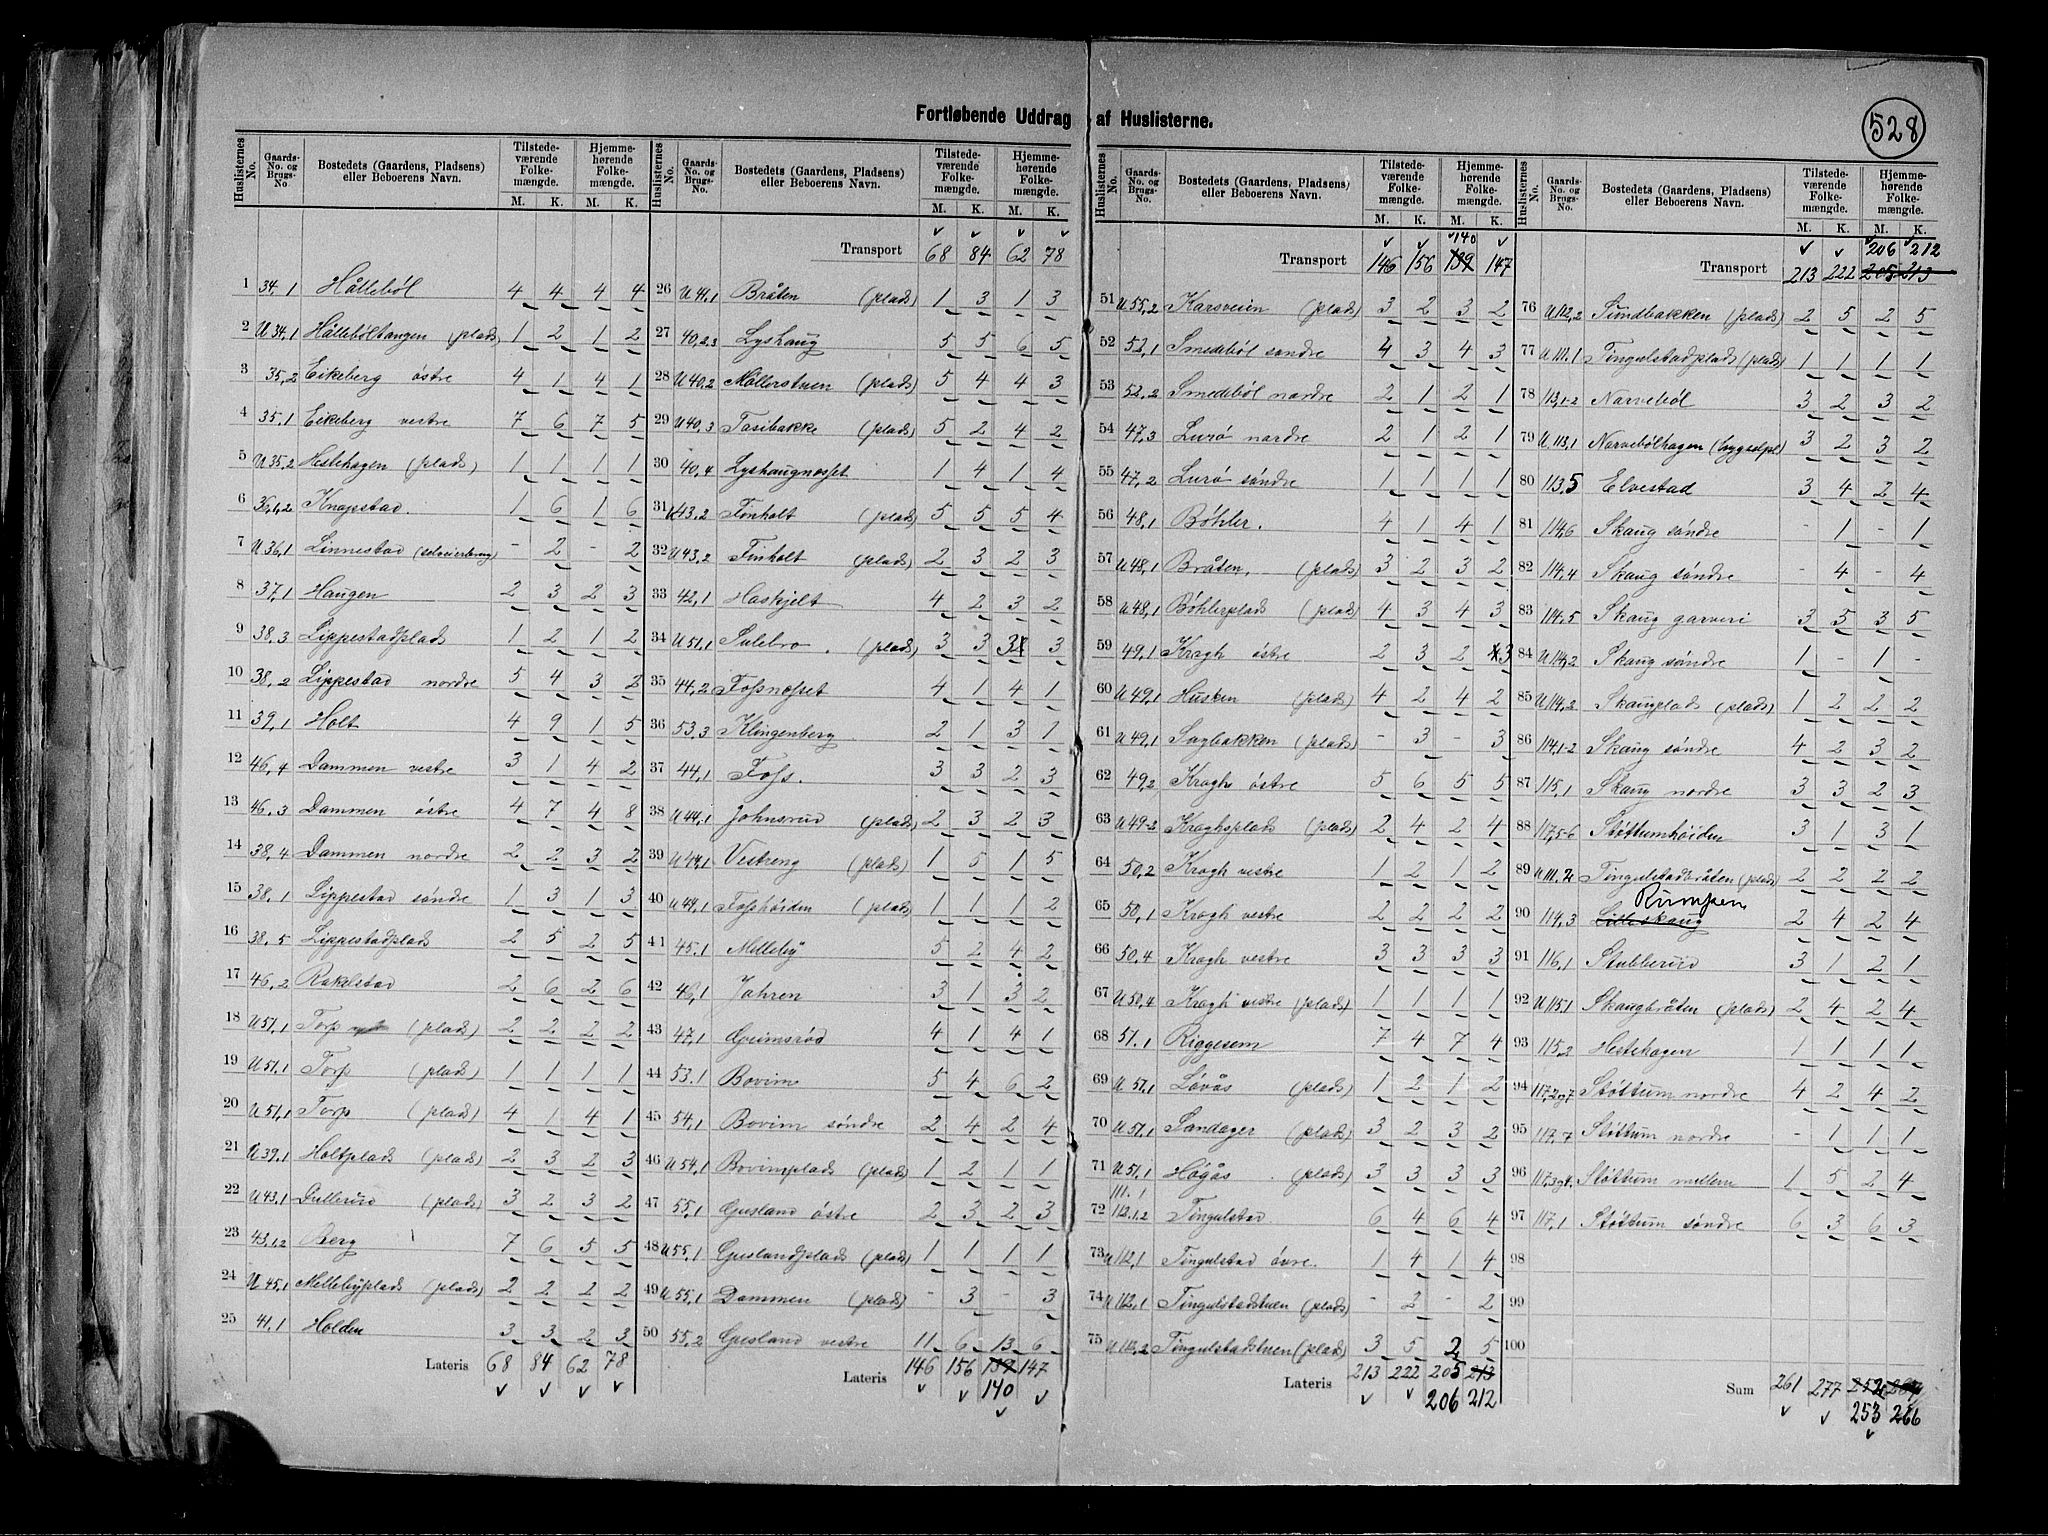 528
Fortløbende Uddrag af Huslisterne.
Huslisternes No. Gaards-No. og Brugs-No. Bostedets (Gaardens, Pladsens) eller Beboerens Navn. Tilstedeværende Folkemængde. M. K. Hjemmehørende Folkemængde. M. K.
1 34,1 Hållebøl 4 4 4 4
2 U 34,1 Hållebøltangen (plads) 1 2 1 2
3 35,2 Eikeberg östre 4 1 4 1
4 35,1 Eikeberg vestre 7 6 7 5
5 U 35,2 Hestehagen (plads) 1 1 1 1
6 36,1,2 Knapstad. 1 6 1 6
7 U 36,1 Linnestad - 2 - 2
8 37,1 Haugen 2 3 2 3
9 38,3 Lippestadplads 1 2 1 2
10 38,2 Lippestad nordre 5 4 3 2
11 39,1 Holt 4 9 1 5
12 46,4 Dammen vestre 3 1 4 2
13 46,3 Dammen östre 4 7 4 8
14 38,4 Dammen nordre 2 2 3 2
15 38,1 Lippestad söndre 1 3 1 3
16 38,5 Lippestadplads 2 5 2 5
17 46,2 Rakelstad 2 6 2 6
18 U 51,1 Torp (plads) 2 2 2 2
19 U 51,1 Torp (plads) 1 1 1 1
20 U 51,1 Torp (plads) 4 1 4 1
21 U 39,1 Holtplads (plads) 2 3 2 3
22 U 43,1 Dullerud (plads) 3 2 3 2
23 43,1,2 Berg 7 6 5 5
24 U 45,1 Mellebyplads (plads) 2 2 2 2
25 41,1 Holden 3 3 2 3
Lateris 68 84 62 78
Huslisternes No. Gaards-No. og Brugs-No. Bostedets (Gaardens, Pladsens) eller Beboerens Navn. Tilstedeværende Folkemængde. M. K. Hjemmehørende Folkemængde. M. K.
Transport 68 84 62 78
26 U 41,1 Bråten (plads) 1 3 1 3
27 40,2,3 Lyshaug 5 5 6 5
28 U 40,2 Møllerstuen (plads) 5 4 4 3
29 U 40,3 Tasibakke (plads) 5 2 4 2
30 40,4 Lyshaugnesset 1 4 1 4
31 U 43,2 Finholt (plads) 5 5 5 4
32 U 43,2 Finholt (plads) 2 3 2 3
33 42,1 Haskjelt 4 2 3 2
34 U 51,1 Sulebro. (plads) 3 3 3 3
35 44,2 Fossnesset 4 1 4 1
36 53,3 Klingenberg 2 1 3 1
37 44,1 Foss. 3 3 2 3
38 U 44,1 Johnsrud (plads) 2 3 2 3
39 U 44,1 Vestreng (plads) 1 5 1 5
40 U 44,1 Fosshöiden (plads) 1 1 1 2
41 45,1 Melleby 5 2 4 2
42 46,1 Jahren 3 1 3 2
43 47,1 Grimsrød 4 1 4 1
44 53,1 Bovim 5 4 6 2
45 54,1 Bovim söndre 2 4 2 4
46 U 54,1 Bovimplads (plads) 1 2 1 1
47 55,1 Gusland östre 2 3 2 3
48 U 55,1 Guslandplads (plads) 1 1 1 1
49 U 55,1 Dammen (plads) - 3 - 3
50 55,2 Gusland vestre 11 6 13 6
Lateris 146 156 139 147
140
Huslisternes No. Gaards-No. og Brugs-No. Bostedets (Gaardens, Pladsens) eller Beboerens Navn. Tilstedeværende Folkemængde. M. K. Hjemmehørende Folkemængde. M. K.
140
Transport 146 156 139 147
51 U 55,2 Karsveien (plads) 3 2 3 2
52 52,1 Smedebøl søndre 4 3 4 3
53 52,2 Smedebøl nordre 2 1 2 1
54 47,3 Lurø nordre 2 1 2 1
55 47,2 Lurø søndre 1 1 1 1
56 48,1 Bøhler. 4 1 4 1
57 U 48,1 Bråten. (plads) 3 2 3 2
58 U 48,1 Bøhlerplads (plads) 4 3 4 3
59 49,1 Kragh östre 2 3 2 3
60 U 49,1 Husken (plads) 4 2 4 2
61 U 49,1 Sagbakken (plads) - 3 - 3
62 49,2 Kragh östre 5 6 5 5
63 U 49-2 Kraghsplads (plads) 2 4 2 4
64 50,2 Kragh vestre 1 2 1 2
65 50,1 Kragh vestre 2 2 2 2
66 50,4 Kragh vestre 3 3 3 3
67 U 50,4 Kragh vestre (plads) 1 1 1 1
68 51,1 Riggesem 7 4 7 4
69 U 51,1 Løvås (plads) 1 2 1 2
70 U 51,1 Sandager (plads) 3 2 3 2
71 U 51,1 Høgås (plads) 3 3 3 3
111,1
72 112,1,2 Tingulstad 6 4 6 4
73 U 112,1 Tingulstad övre. 1 4 1 4
74 U 112,1 Tingulstadstuen (plads) - 2 - 2
75 U 112,2 Tingulstadstuen (plads) 3 5 2 5
Lateris 213 222 205 213
206 212
Huslisternes No. Gaards-No. og Brugs-No. Bostedets (Gaardens, Pladsens) eller Beboerens Navn. Tilstedeværende Folkemængde. M. K. Hjemmehørende Folkemængde. M. K.
206 212
Transport 213 222 205 213
76 U 112,2 Sundbakken (plads) 2 5 2 5
77 U 111,1 Tingulstadplads (plads) 1 1 1 1
78 113,1-2 Narvebøl 3 2 3 2
79 U 113,1 Narvebølhagen 3 2 3 2
80 113,5 Elvestad 3 4 2 4
81 114,6 Skaug søndre - 1 - 1
82 114,4 Skaug søndre - 4 - 4
83 114,5 Skaug garveri 3 5 3 5
84 U 114,2 Skaug søndre 1 - 1 -
85 U 114,2 Skaugplads (plads) 1 2 2 2
86 114,1-2 Skaug søndre 4 2 3 2
87 115,1 Skaug nordre 3 3 2 3
88 117,5-6 Støttumhöiden 3 1 3 1
89 U 111,2 Tingulstadbråten (plads) 2 2 2 2
Rumpen
90 114,3 Lilleskaug 2 4 2 4
91 116,1 Stubberud 3 1 2 1
92 U 115,1 Skaugbråten (plads) 2 4 2 4
93 115,2 Hestehagen 1 1 1 1
94 117,2og7 Støttum nordre 4 2 4 2
95 117,7 Støttum nordre - 1 1 1
96 117,3og4. Støttum mellem 1 5 2 4
97 117,1 Støttum søndre 6 3 6 3
98
99
100
Sum 261 277 252
253 266